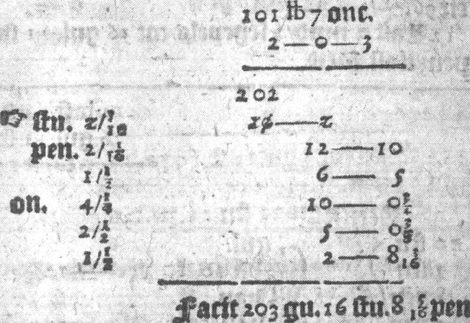 101 ℔ 7 onc.
2—0—3
202
☞ stu. 2/1/10 10—2
pen. 2/1/16 12—10
1/1/2 6—5
on. 4/1/4 10—0 3/4
2/1/2 5—0 3/8
1/1/2 2—8 3/16
Facit 203 gu. 16 stu. 8 5/16 pen